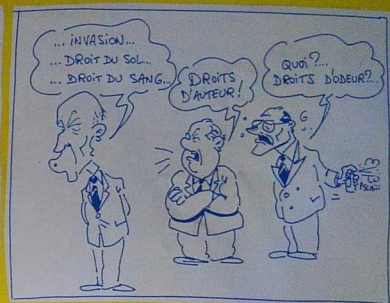 ... INVASION...
... DROIT DU SOL...
... DROIT DU SANG...
DROITS
D'AUTEUR!
QUOI?...
DROITS D'ODEUR?..